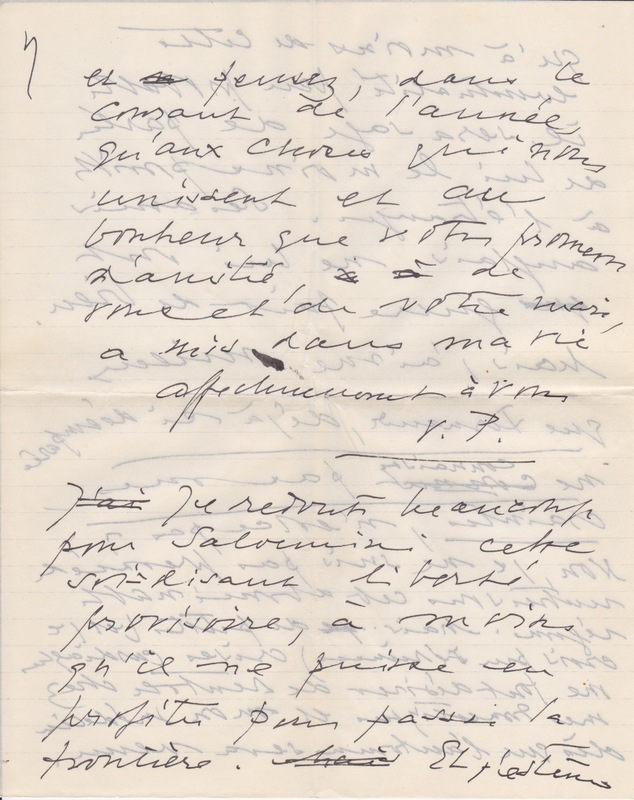 et pensez, dans le
courant de l'année,
qu'aux choses qui nous
unissent et au
bonheur que votre
d'amitié, de
vous et de votre mari,
a mis dans ma vie
affectueusement à vous
V. P.
connaissez
J'ai Je redoute beaucoup
pour Salvemini cette
soi-disant liberté
provisoire, à moins
qu'il ne puisse en
profiter pour passer la
frontière. Mais Et j'estime